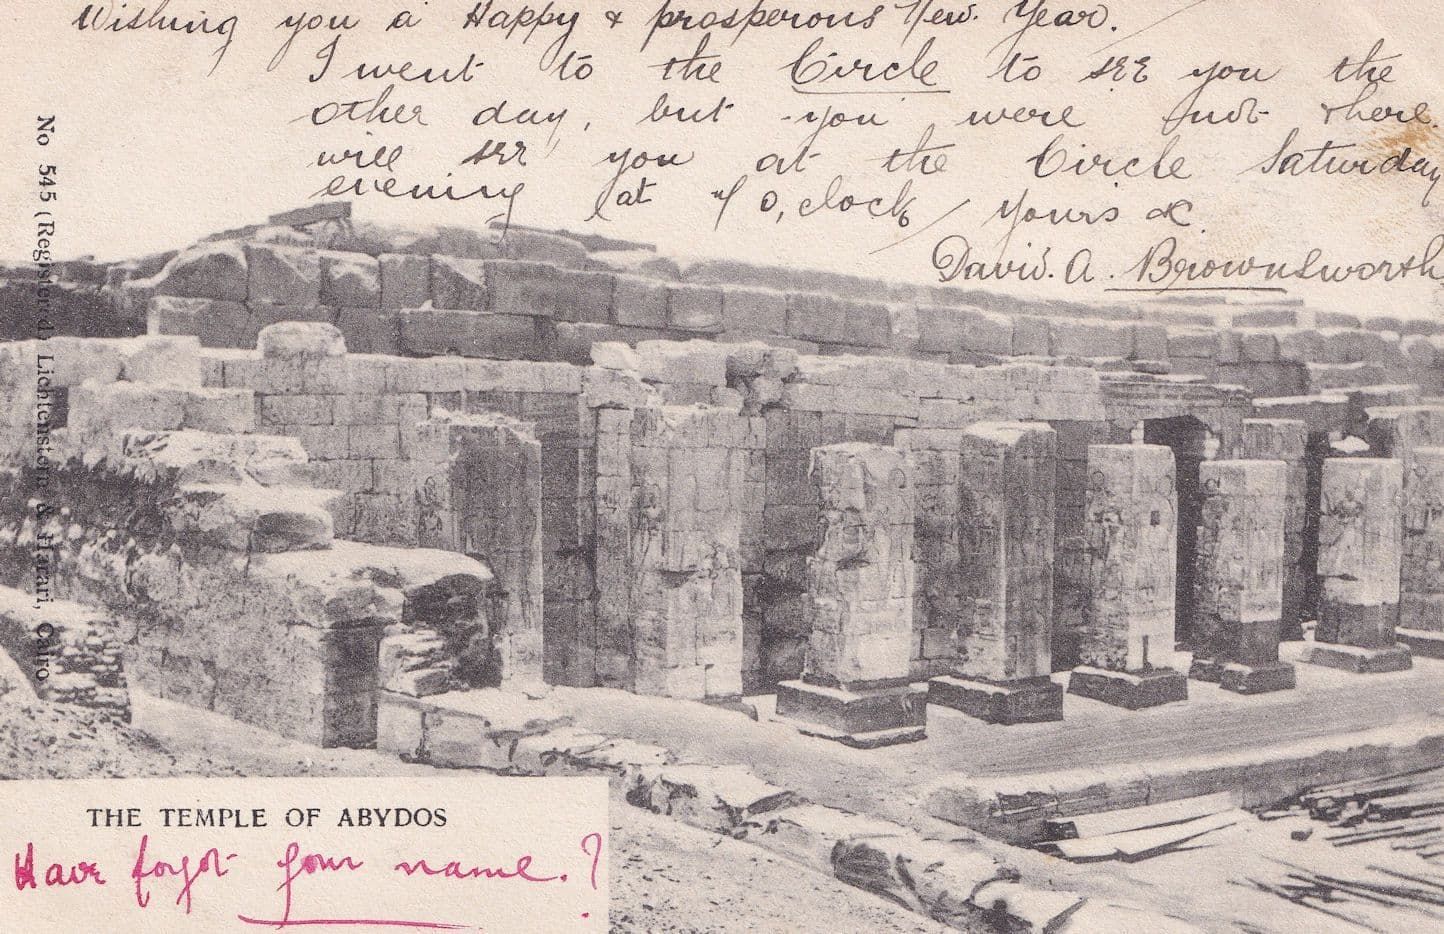 Wishing you a Happy & prosperous New. Year.
I went to the Circle to see you the
other day, but you were not there.
will see you at the Circle Saturday
evening at o,clock / yours &c.
David. A. Brownsworth
No 545 (Registered) Lichtenstern & Harari, Cairo
THE TEMPLE OF ABYDOS
Have forgot your name.?